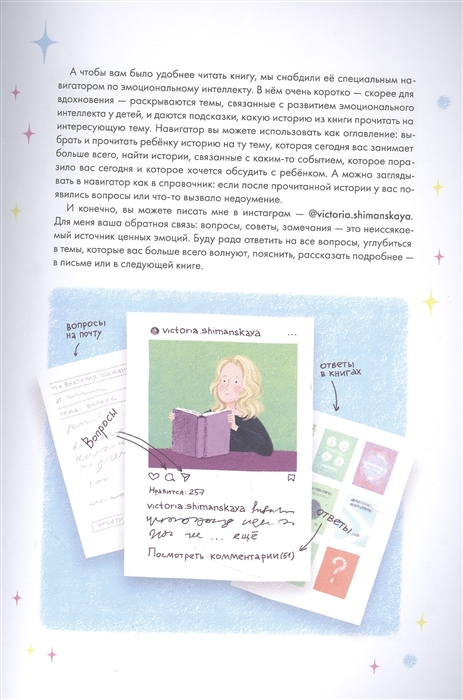 А чтобы вам было удобнее читать книгу, мы снабдили её специальным на-
вигатором по эмоциональному интеллекту. В нём очень коротко — скорее для
вдохновения — раскрываются темы, связанные с развитием эмоционального
интеллекта у детей, и даются подсказки, какую историю из книги прочитать на
интересующую тему. Навигатор вы можете использовать как оглавление: вы-
брать и прочитать ребёнку историю на ту тему, которая сегодня вас занимает
больше всего, найти истории, связанные с каким-то событием, которое пора-
зило вас сегодня и которое хочется обсудить с ребёнком. А можно загляды-
вать в навигатор как в справочник: если после прочитанной истории у вас по-
явились вопросы или что-то вызвало недоумение.
И конечно, вы можете писать мне в инстаграм — @victoria.shimanskaya.
Для меня ваша обратная связь: вопросы, советы, замечания — это неиссякае-
мый источник ценных эмоций. Буду рада ответить на все вопросы, углубиться
в темы, которые вас больше всего волнуют, пояснить, рассказать подробнее —
в письме или в следующей книге.
вопросы
на почту
victoria.shimanskaya
...
ответы
в книгах
Виктория
от
тема: вопрос
Вопросы
Нравится: 257
victoria.shimanskaya
... ещё
Посмотреть комментарии(51)
ответы
?